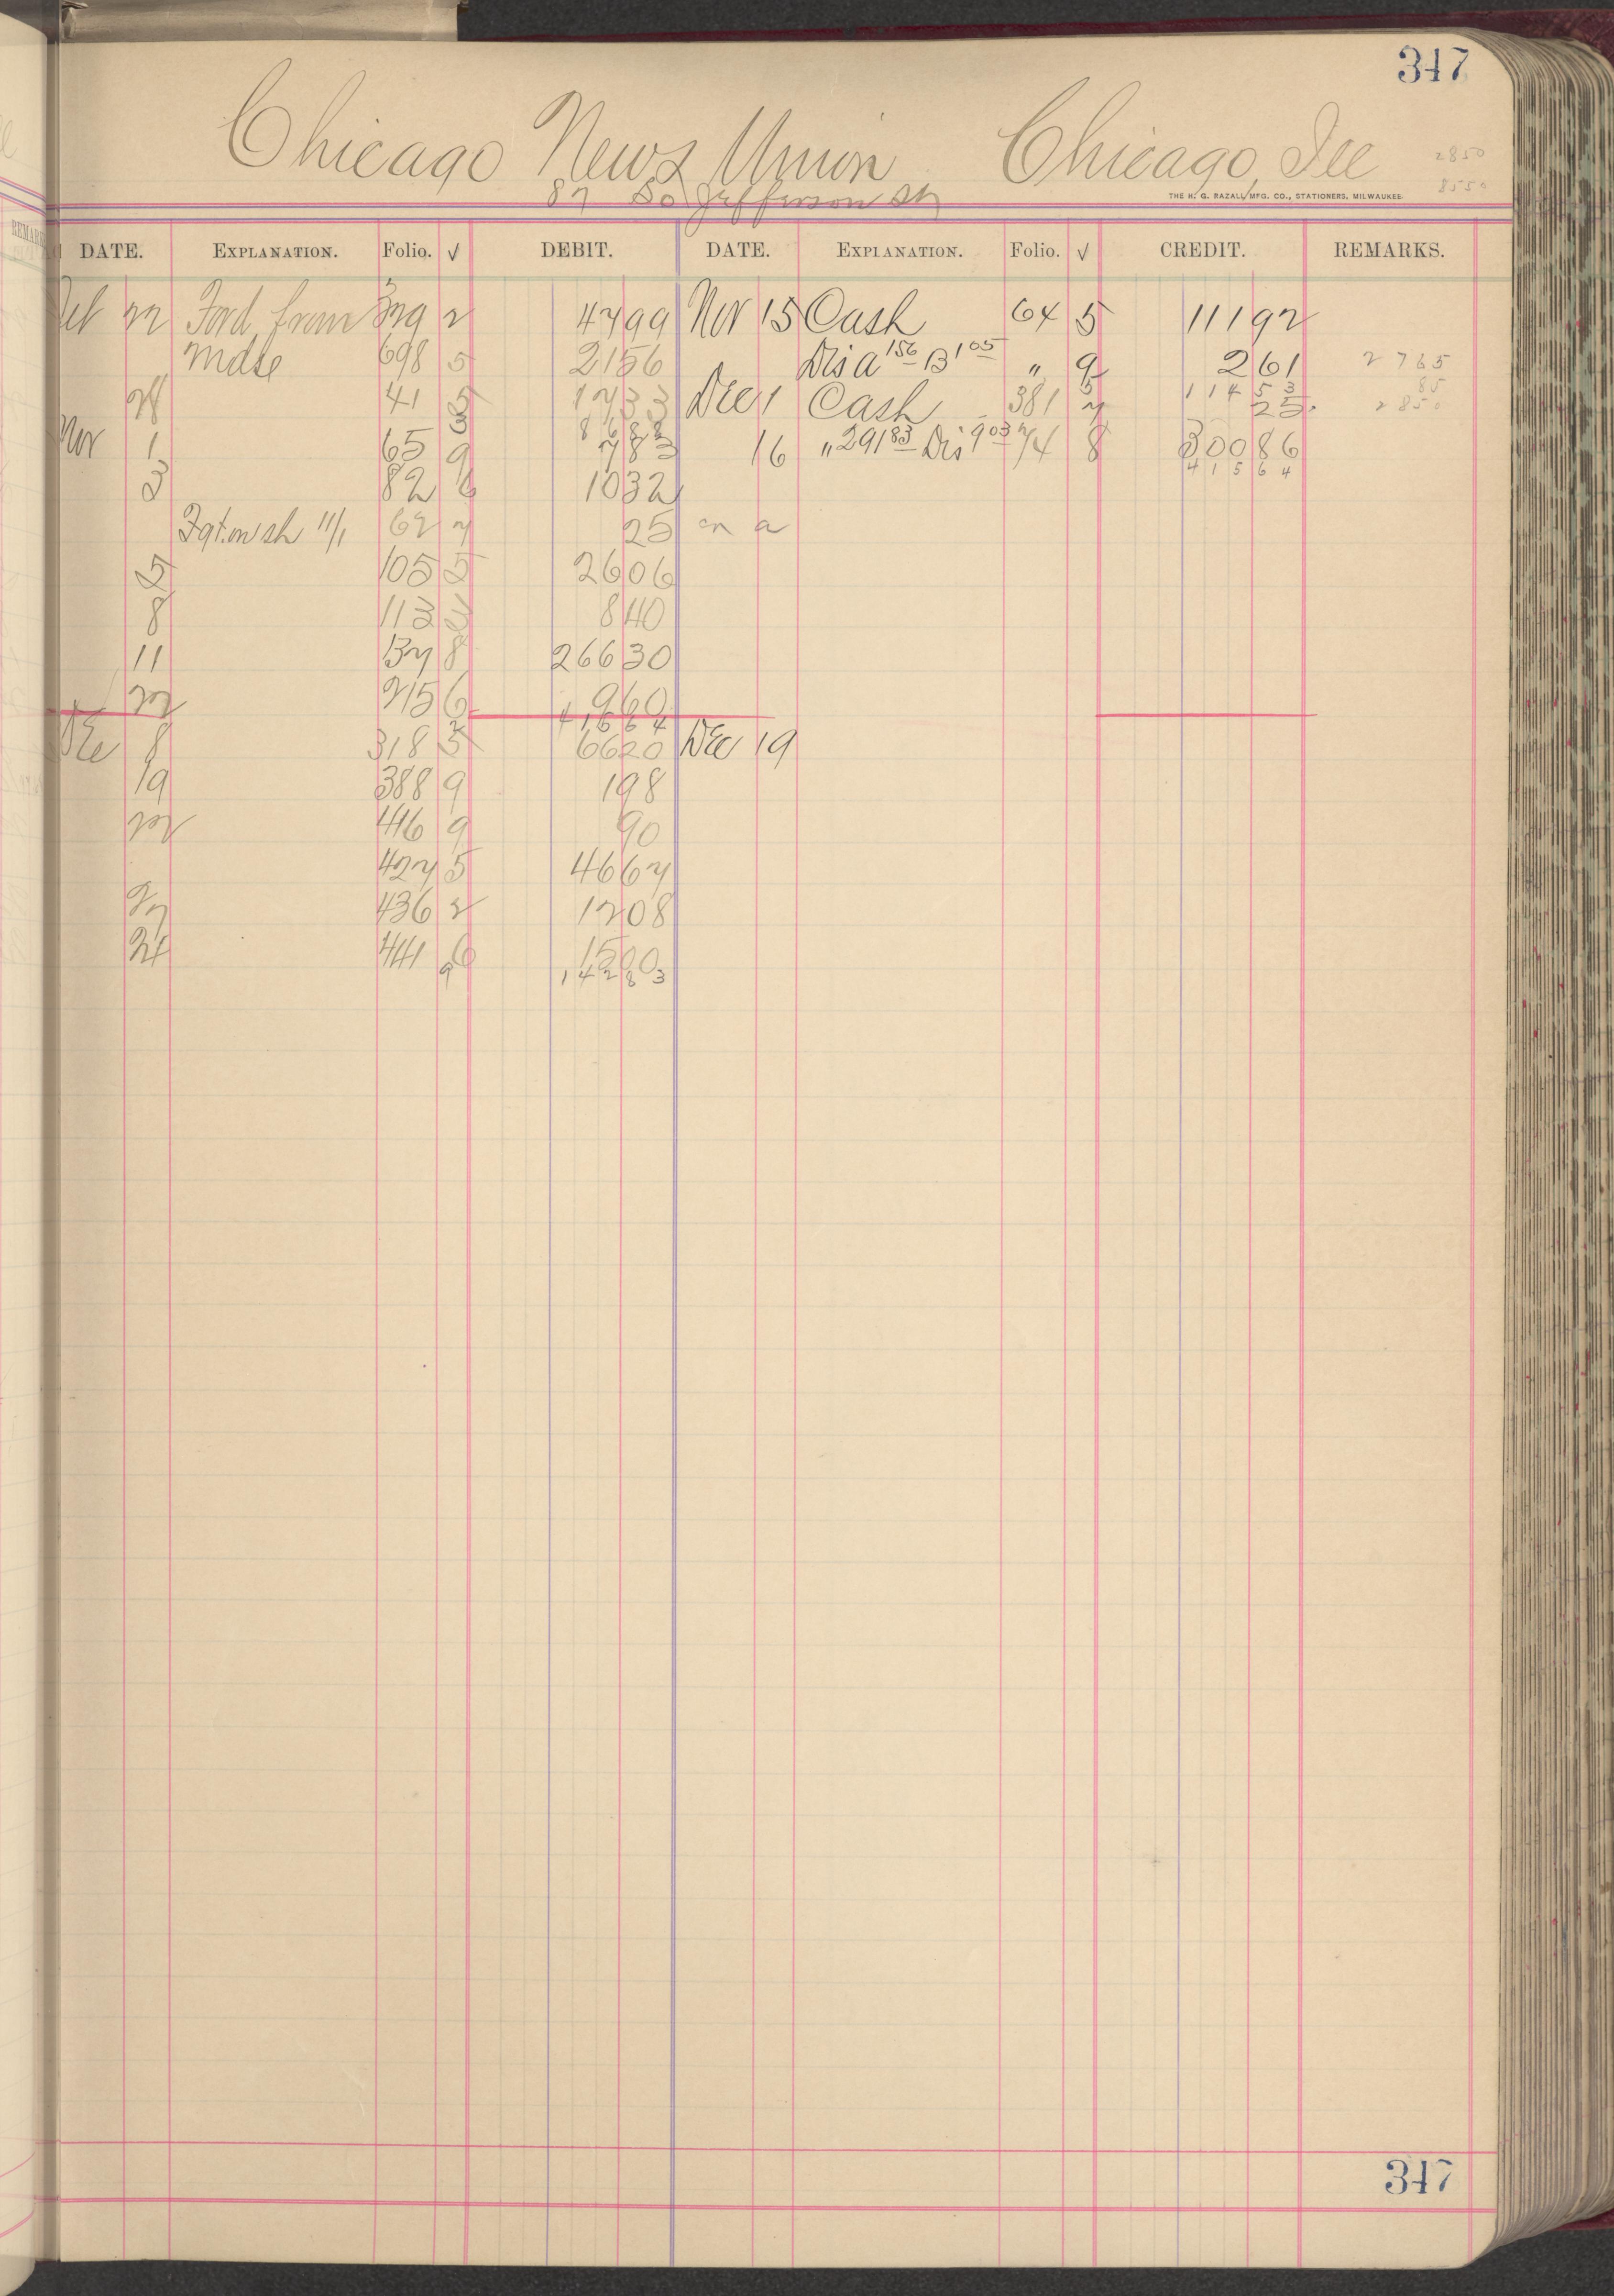 347
Chicago News Union Chicago, Ill 2850
87 So Jefferson St 8550
THE H. G. RAZALL MFG. CO., STATIONERS, MILWAUKEE
DATE. EXPLANATION. Folio. √ DEBIT. DATE. EXPLANATION. Folio. √ CREDIT. REMARKS.
22 Ford from 2 4799 Nov 15 Cash 64 5 11192
Mdse 698 5 2156 Dis a 156 B 105 " 9 261 2765
41 5 1733 Dec 1 Cash 381 11453 25 85 2850
Nov 1 65 9 783 16 " 29183 Dis 903 74 8 30086
3 82 6 1032 41564
Fgt. on sh 11/1 62 7 25 on a
5 105 5 2606
8 113 3 840
11 137 8 26630
22 215 6 960
41564
Dec 8 318 5 6620 Dec 19
19 388 9 198
22 416 9 90
427 5 4667
436 2 1208
24 441 6 1500
9 14283
347